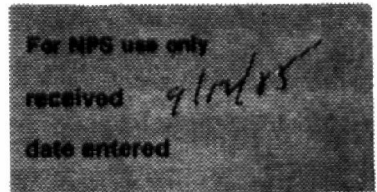 For NPS use only
received 9/12/85
date entered